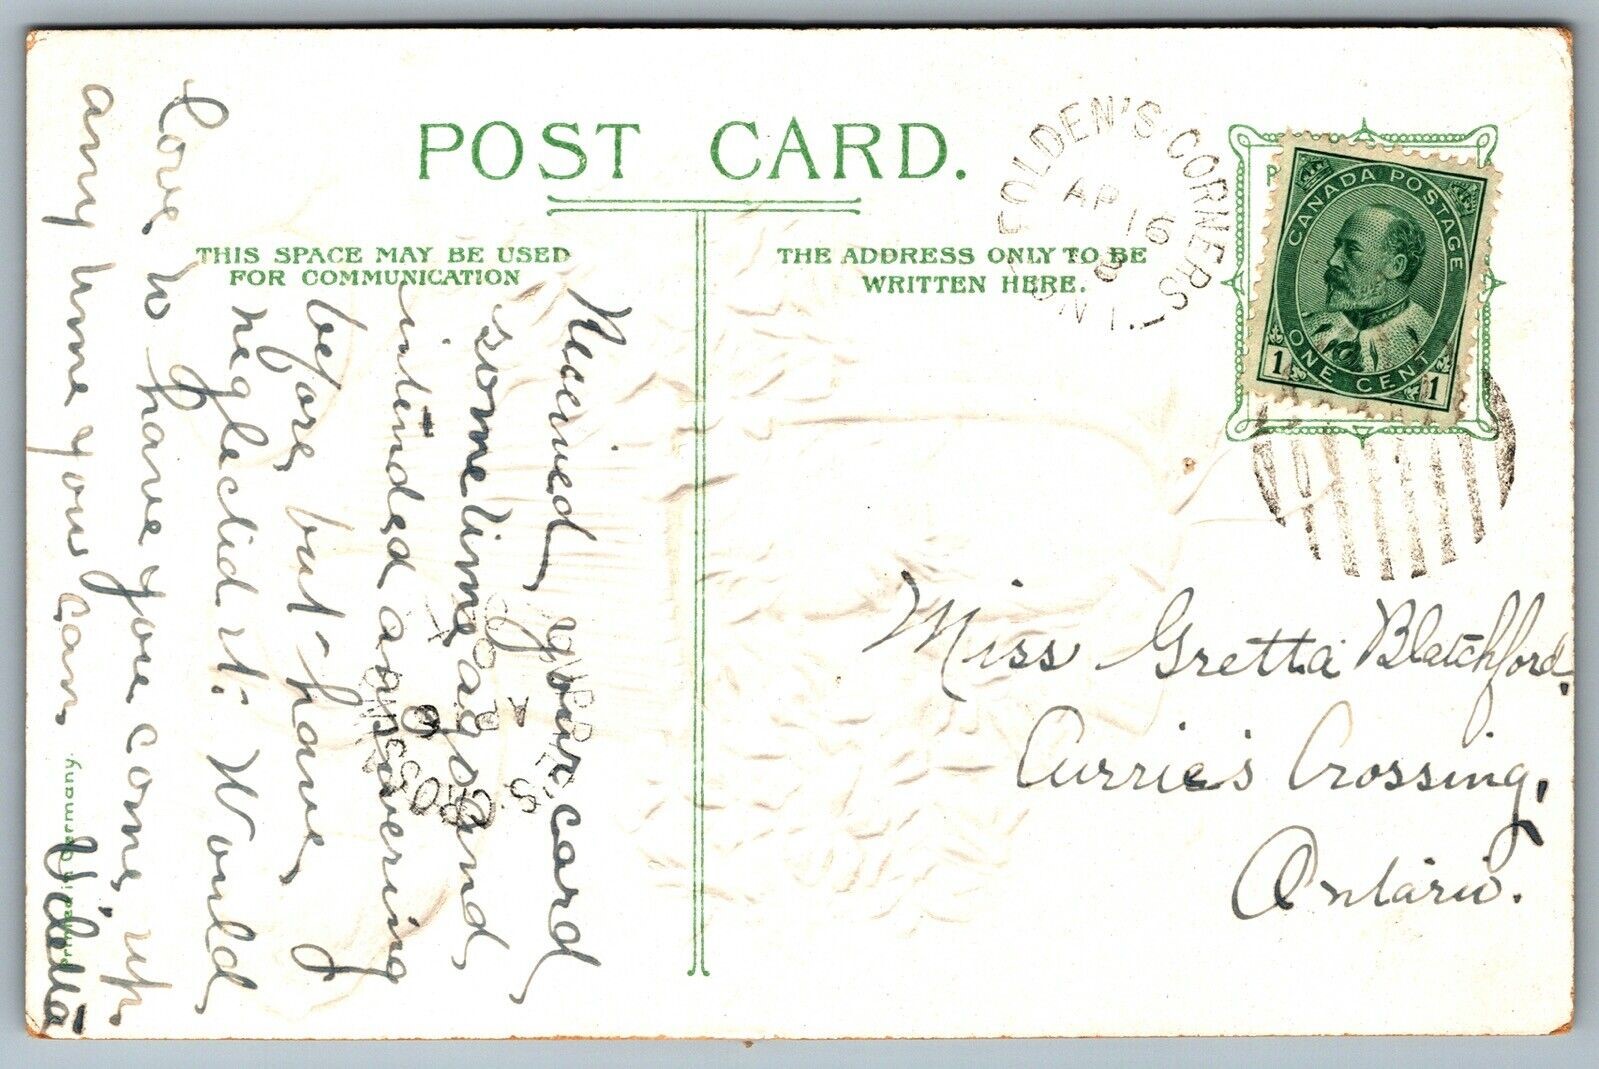 POST CARD.
THIS SPACE MAY BE USED
FOR COMMUNICATION
THE ADDRESS ONLY TO BE
WRITTEN HERE.
FOLDEN'S·CORNERS
AP 16
8
ONT.
CANADA POSTAGE
ONE CENT
1 1
Received your card
some time ago and
intended answering
before but have
neglected it. Would
love to have you come up
any time you can.
Miss Gretta Blatchford.
Currie's Crossing,
Ontario.
CURRIE'S·CROSSING
AP
Printed in Germany.